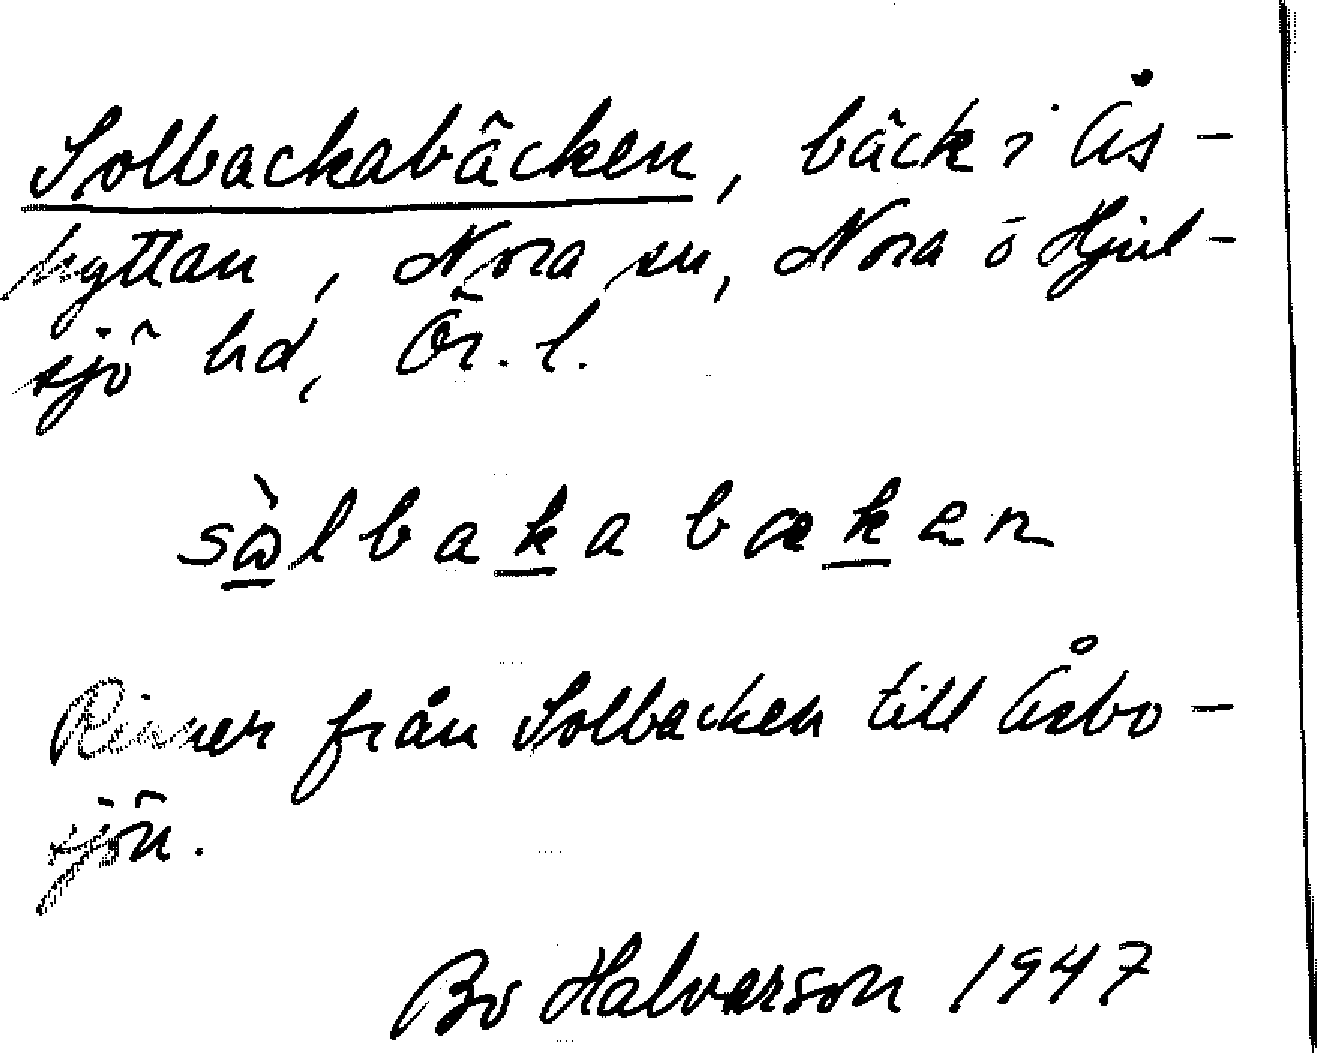 Solbackabäcken, bäck i Ås-
hyttan, Nora sn, Nora o Hjul-
sjö hd, Ör. l.
sὼlbakabæken
Rinner från Solbacken till Åsbo-
sjön.
Bo Halvarson 1947